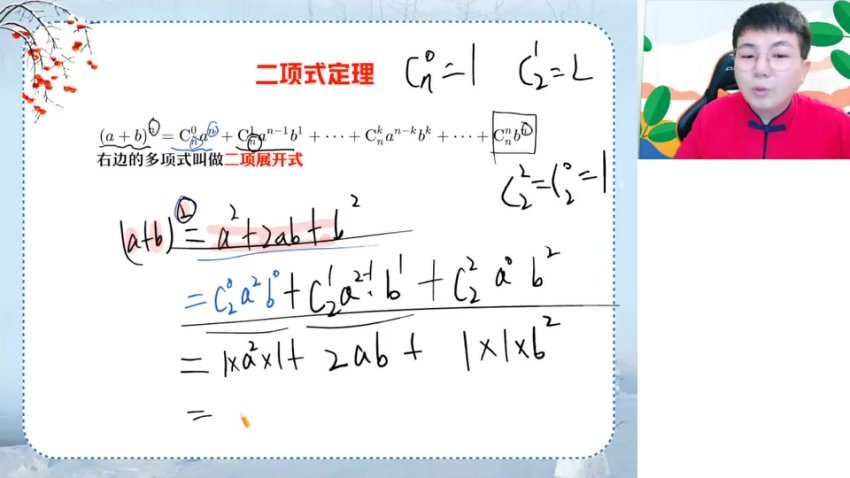 二项式定理 Cₙ⁰=1 C₂¹=2
(a + b)ⁿ = Cₙ⁰aⁿ + Cₙ¹aⁿ⁻¹b¹ + ··· + Cₙᵏaⁿ⁻ᵏbᵏ + ··· + Cₙⁿbⁿ
右边的多项式叫做二项展开式
C₂²=C₂⁰=1
(a+b)²=a²+2ab+b²
=C₂⁰a²b⁰+C₂¹a²⁻¹·b¹+C₂²a⁰b²
=1×a²×1+2ab+1×1×b²
=